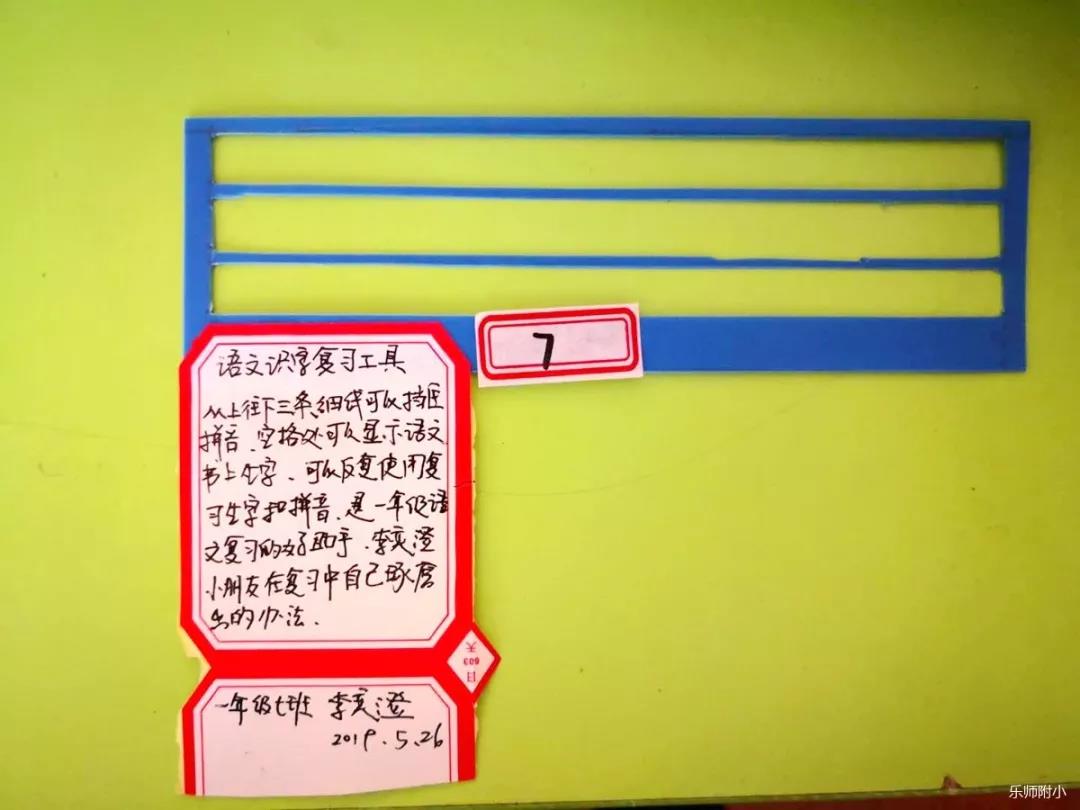 7
语文识字复习工具
从上往下三条细线可以挡住
拼音、空格处可以显示语文
书上生字、可以反复使用复
习生字和拼音、是一年级语
文复习的好助手、李奕澄
小朋友在复习中自己琢磨
出的办法.
天
603
日
一年级七班 李奕澄
2019.5.26
乐师附小